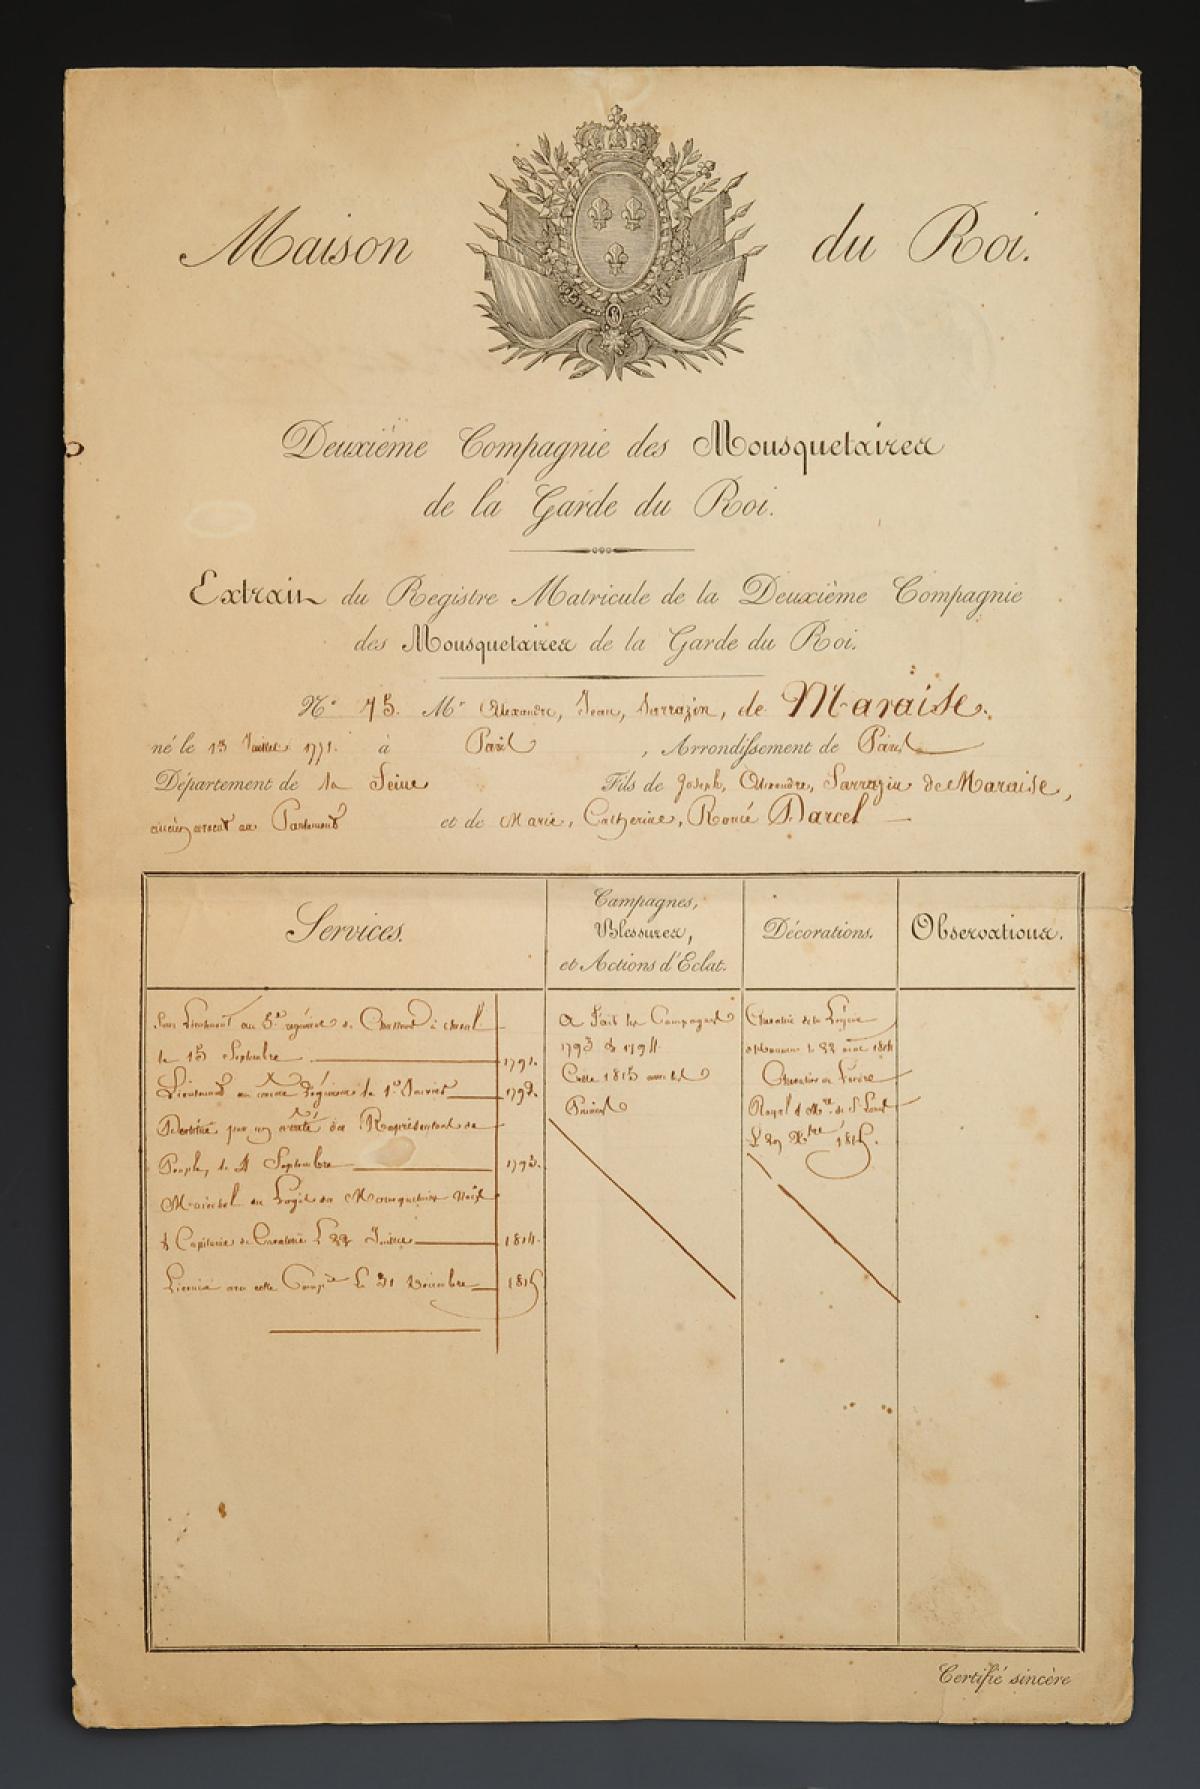 Maison du Roi.
Deuxième Compagnie des Mousquetaires
de la Garde du Roi.
Extrait du Registre Matricule de la Deuxième Compagnie
des Mousquetaires de la Garde du Roi.
N° 75. Mr Alexandre, Jean, Sarrazin, de Maraise.
né le 13 Juillet 1771. à Paris, Arrondissement de Paris
Département de la Seine Fils de Joseph, Alexandre, Sarrazin de Maraise,
ancien avocat au Parlement et de Marie, Catherine, Renée Darcel
Services.
Campagnes,
Blessures,
et Actions d'Eclat.
Décorations.
Observations.
Sous Lieutenant au 5e régiment de Chasseurs à cheval
le 15 Septembre 1791.
Lieutenant au même Régiment le 1er Janvier 1793.
Destitué par un arrêté du Représentant du
Peuple, le 4 Septembre 1793.
Maréchal des Logis des Mousquetaires Noirs
& Capitaine de Cavalerie le 22 Juillet 1814.
Licencié avec cette Compie le 31 Décembre 1815
A fait les Campagnes
1793 & 1794
Celle 1815 avec les
Princes
Chevalier de la Légion
d'honneur le 22 1814
Chevalier de l'ordre
Royal & Mre de St Louis
le 1815.
Certifié sincère